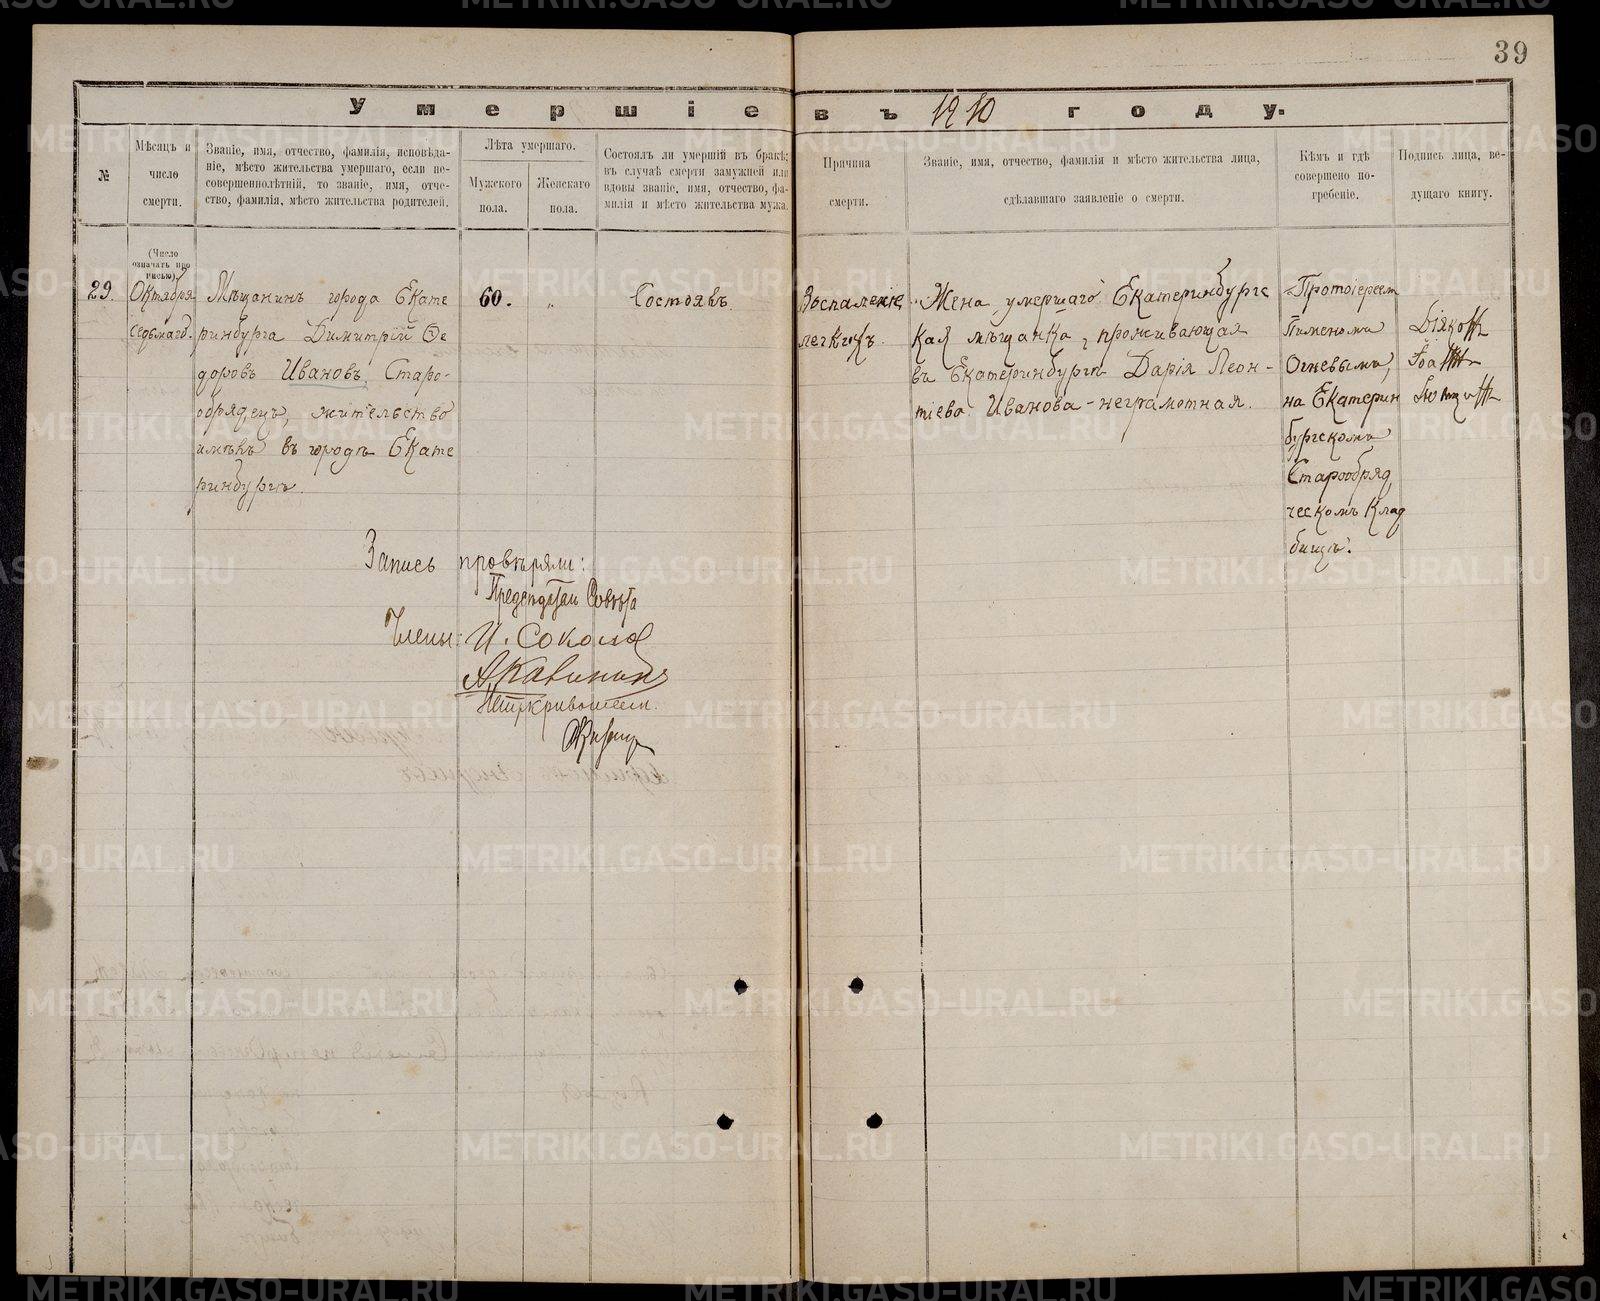 39
Умершіе въ 1910 году.
№
Мѣсяцъ и
число
смерти.
Званіе, имя, отчество, фамилія, исповѣда-
ніе, мѣсто жительства умершаго, если не-
совершеннолѣтній, то званіе, имя, отче-
ство, фамилія, мѣсто жительства родителей.
Лѣта умершаго.
Мужскаго
пола.
Женскаго
пола.
Состоялъ ли умершій въ бракѣ;
въ случаѣ смерти замужней или
вдовы званіе, имя, отчество, фа-
милія и мѣсто жительства мужа.
Причина
смерти.
Званіе, имя, отчество, фамилія и мѣсто жительства лица,
сдѣлавшаго заявленіе о смерти.
Кѣмъ и гдѣ
совершено по-
гребеніе.
Подпись лица, ве-
дущаго книгу.
(Число
означать про
писью).
29.
Октября
седьмаго.
Мѣщанинъ города Екате
ринбурга Димитрій Ѳе
доровъ Ивановъ, Старо-
обрядецъ, жительство
имѣлъ въ городѣ Екате
ринбургѣ.
60.
"
Состоялъ.
Воспаленіе
легкихъ.
Жена умершаго Екатеринбургс
кая мѣщанка, проживающая
въ Екатеринбургѣ Дарія Леон-
тіева Иванова - неграмотная.
Протоіереем
Пименомъ
Огневымъ,
на Екатерин
бургскомъ
Старообряд
ческомъ Клад
бищѣ.
Запись провѣряли:
Совѣта
Члены: И. Соколов
METRIKI.GASO-URAL.RU